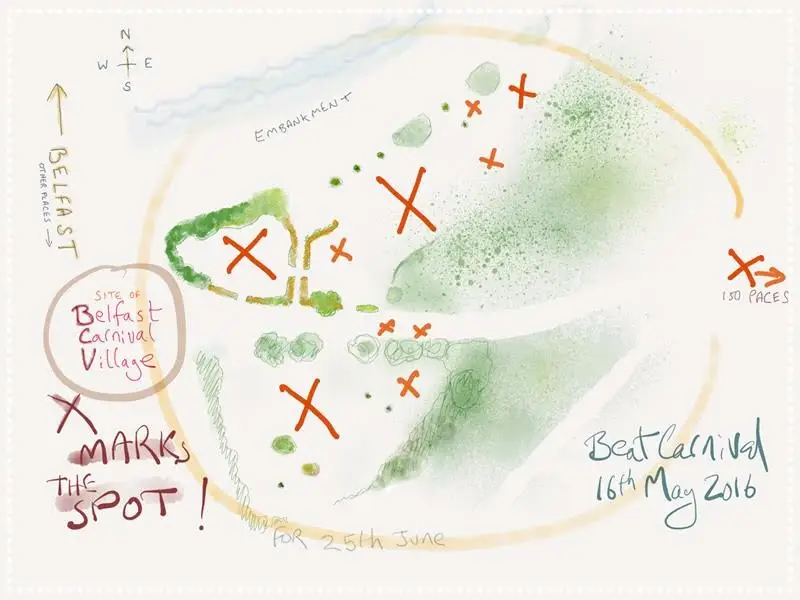 N
W E
S
EMBANKMENT
BELFAST
OTHER PLACES
SITE OF
Belfast
Carnival
Village
150 PACES
X
MARKS
THE
SPOT!
Beat Carnival
16th May 2016
FOR 25th June